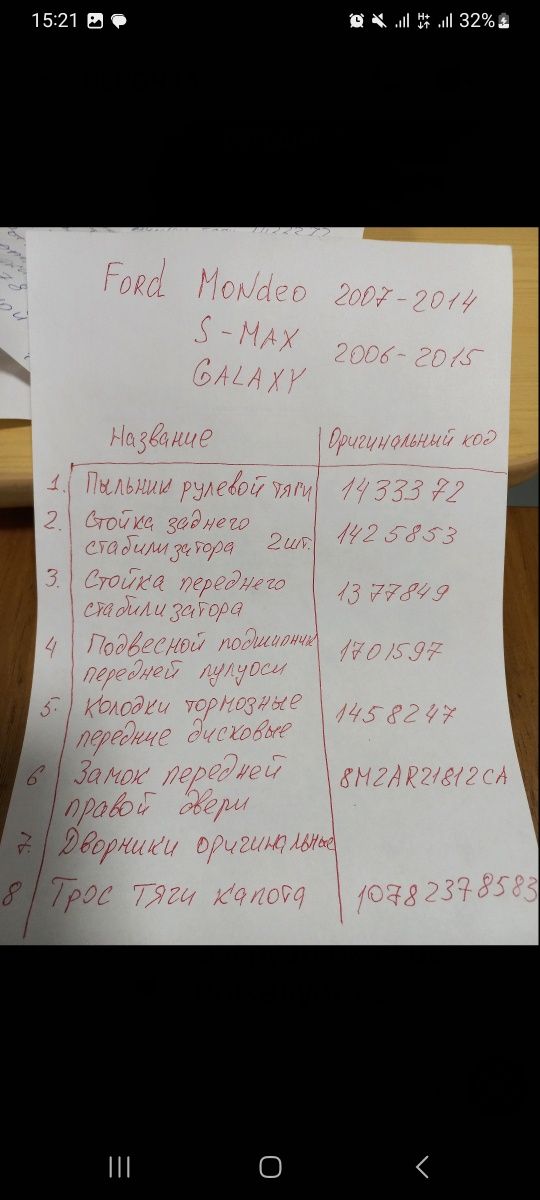 15:21 32%
Ford Mondeo 2007-2014
S-MAX
2006-2015
GALAXY
Название Оригинальный код
1. Пыльник рулевой тяги 1433372
2. Стойка заднего
стабилизатора 2шт. 1425853
3. Стойка переднего
стабилизатора 1377849
4 Подвесной подшипник
передней пулуоси 1701597
5. Колодки тормозные
передние дисковые 1458247
6 Замок передней
правой двери 8M2AR21812CA
7. Дворники оригинальные
8 Трос тяги капота 10782378583